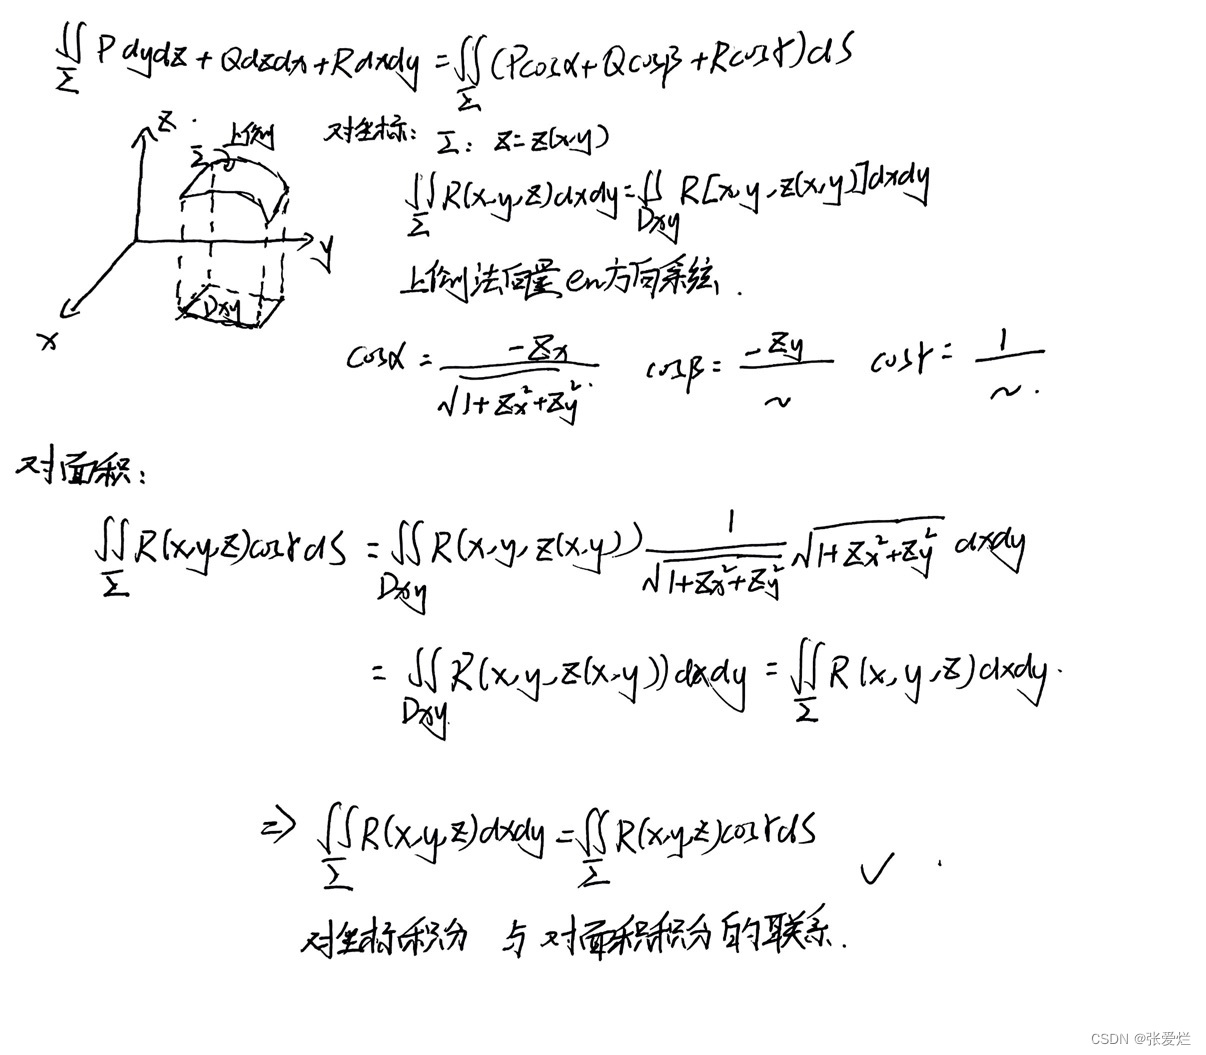 ∬_Σ Pdydz+Qdzdx+Rdxdy=∬_Σ(Pcosα+Qcosβ+Rcosγ)dS
z
上侧
Σ
y
x
Dxy
对坐标: Σ: z=z(x,y)
∬_Σ R(x,y,z)dxdy=∬_Dxy R[x,y,z(x,y)]dxdy
上侧法向量en方向系统.
cosα = -Zx/√(1+Zx²+Zy²) cosβ = -Zy/~ cosγ = 1/~.
对面积:
∬_Σ R(x,y,z)cosγdS = ∬_Dxy R(x,y,z(x,y)) 1/√(1+Zx²+Zy²) √(1+Zx²+Zy²) dxdy
= ∬_Dxy R(x,y,z(x,y))dxdy = ∬_Σ R(x,y,z)dxdy.
⇒ ∬_Σ R(x,y,z)dxdy=∬_Σ R(x,y,z)cosγdS ✓
对坐标积分 与对面积积分的联系.
CSDN @张爱烂